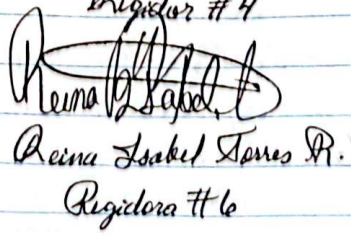 Regidor # 4
Reina Isabel T
Reina Isabel Torres R.
Regidora #6